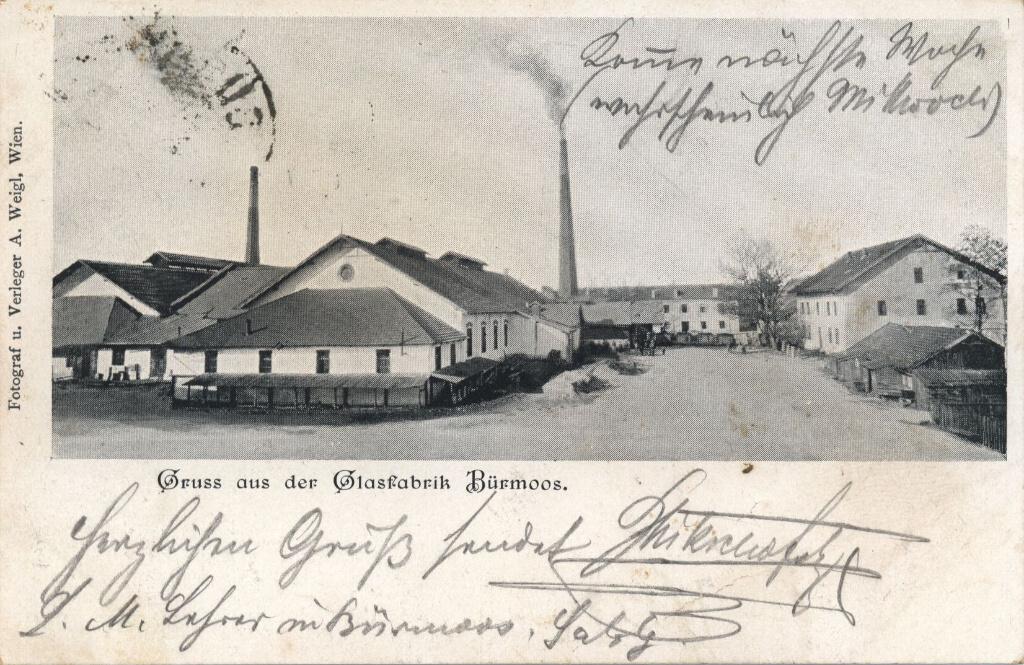 Komme nächste Woche
wahrscheinlich Mittwoch
Fotograf u. Verleger A. Weigl, Wien.
Gruss aus der Glasfabrik Bürmoos.
Herzlichen Gruß sendet
L. M. Lehrer in Bürmoos, Salzbg